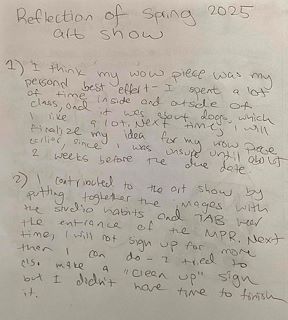 Reflection of Spring 2025
art show
1) I think my wow piece was my
personal best effort - I spent a lot
of time inside and outside of
class, and it was about dogs, which
I like a lot. Next time, I will
finalize my idea for my wow piece
earlier, since I was unsure until about
2 weeks before the due date.
2) I contributed to the art show by
putting together the images with
the studio habits and TAB near
the entrance of the MPR. Next
time, I will not sign up for more
then I can do - I tried to
also make a "clean up" sign
but I didn't have time to finish
it.